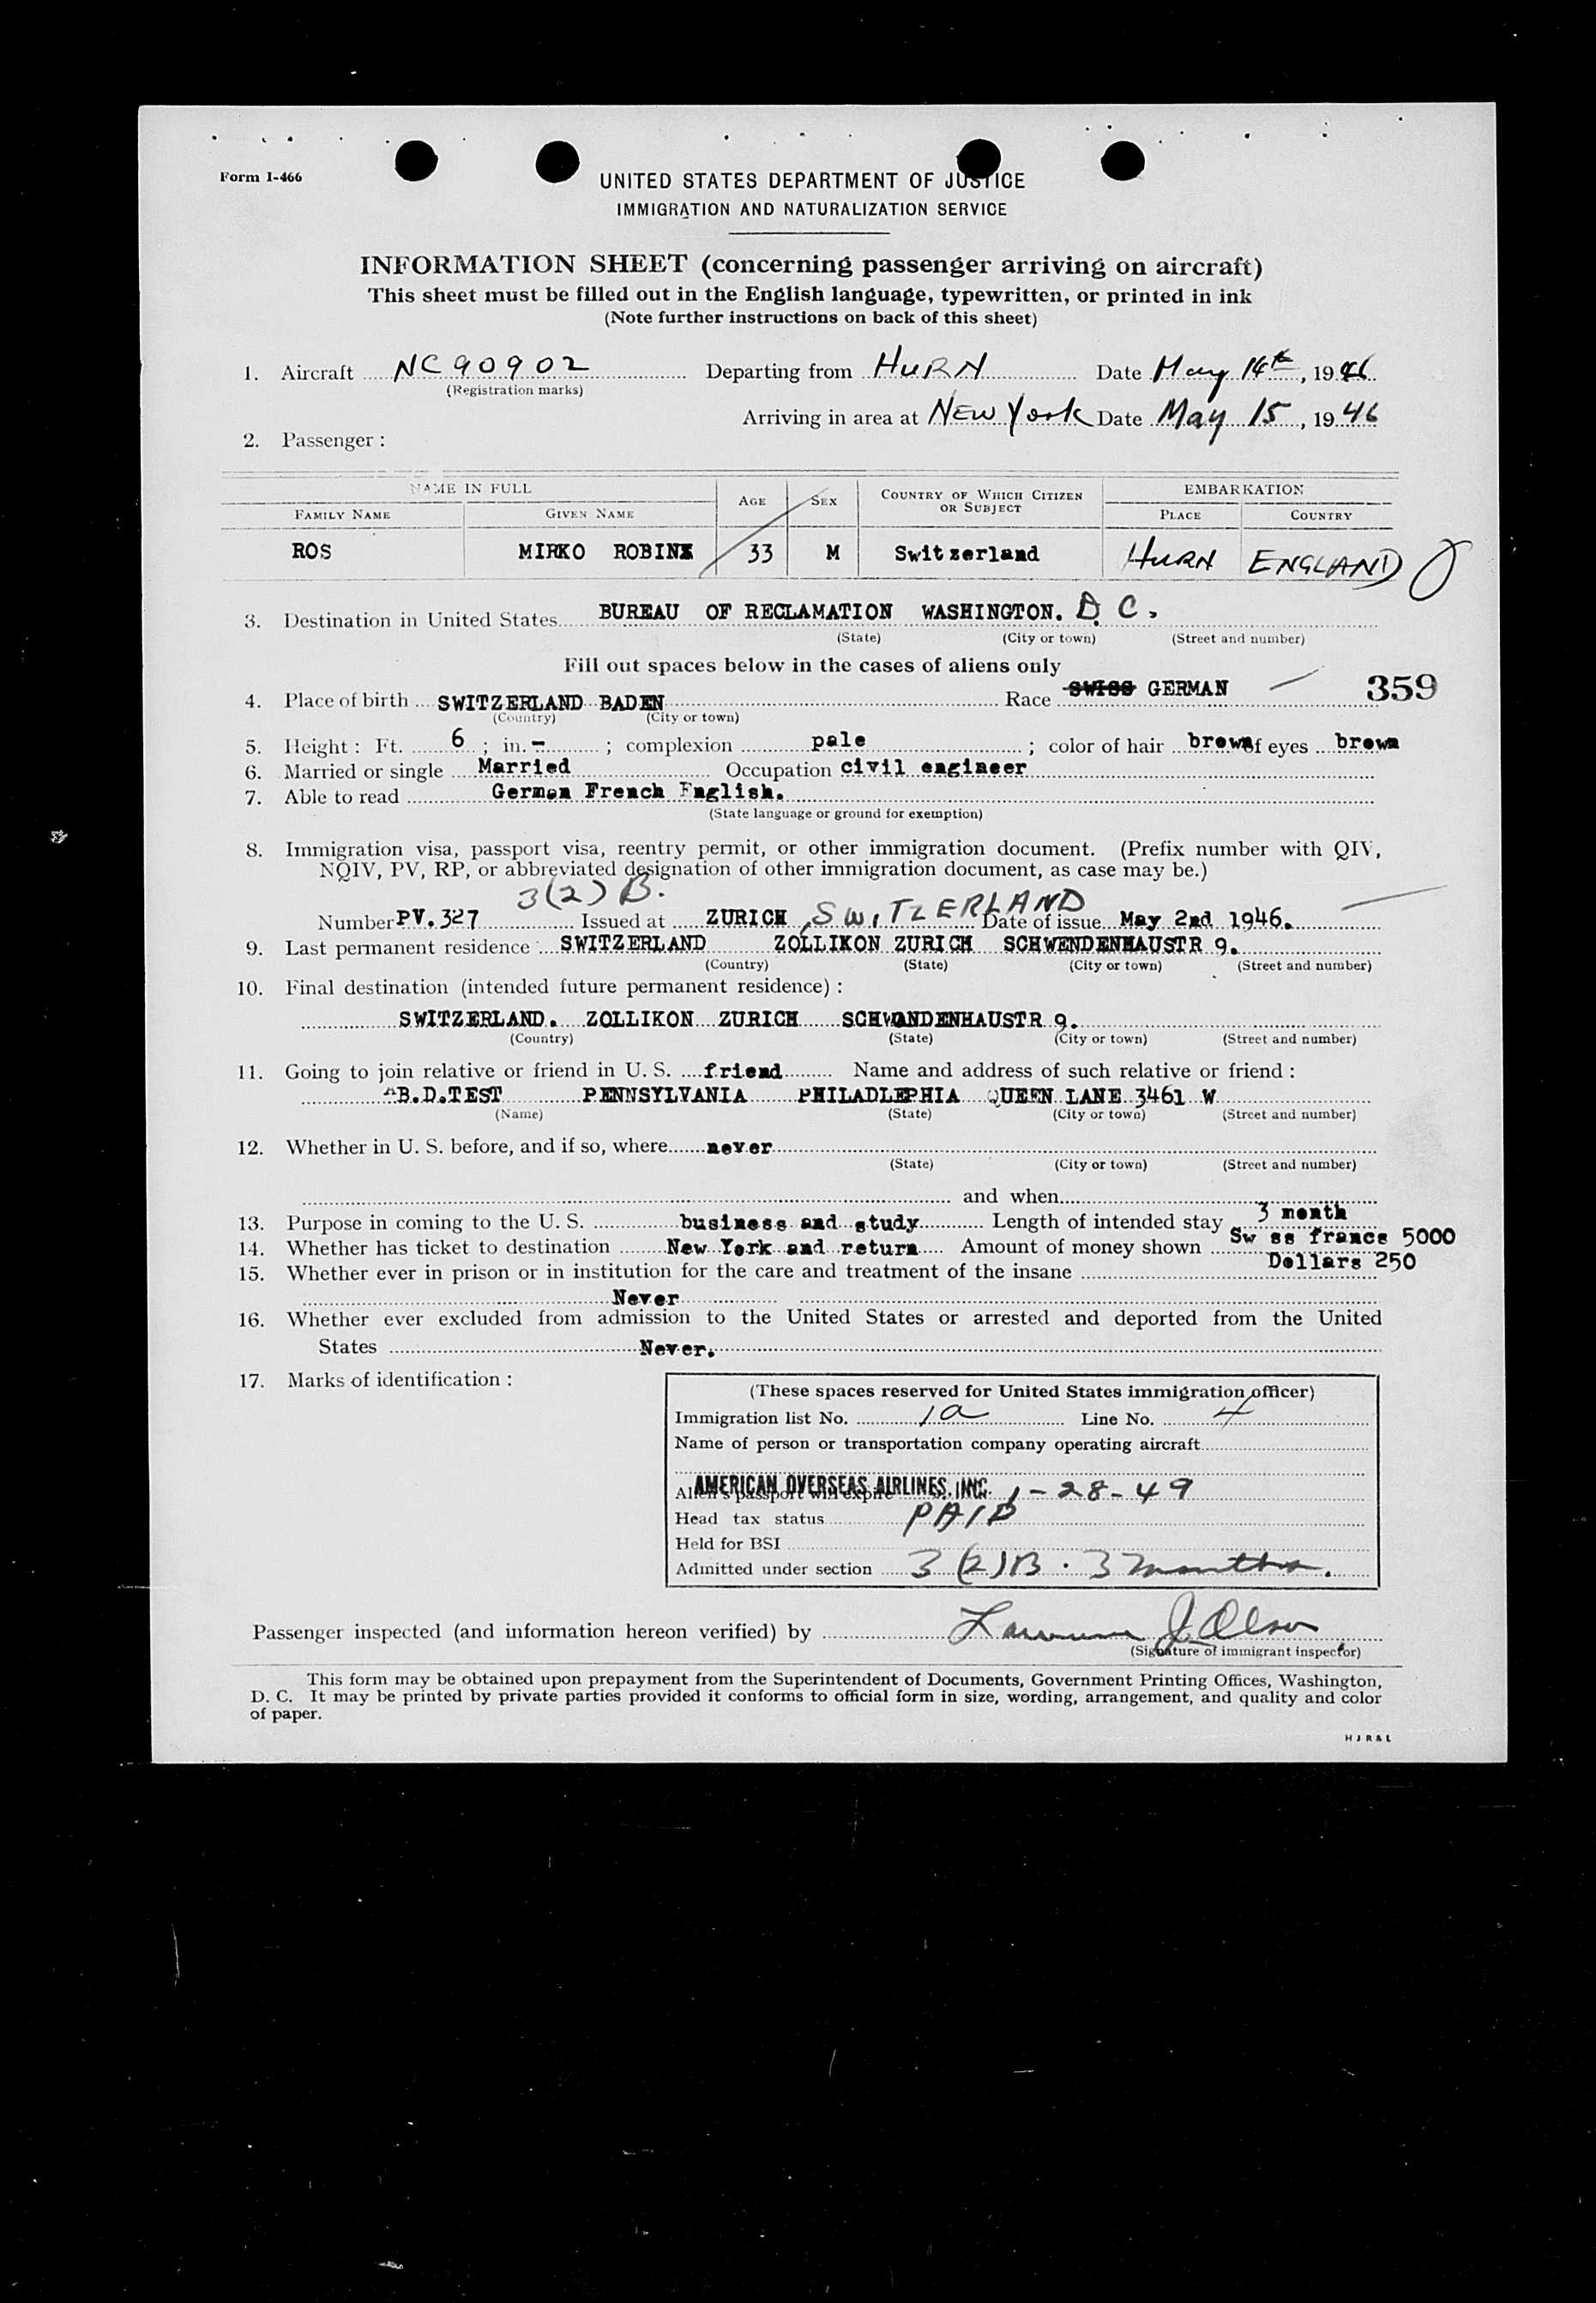 Form I-466
UNITED STATES DEPARTMENT OF JUSTICE
IMMIGRATION AND NATURALIZATION SERVICE
INFORMATION SHEET (concerning passenger arriving on aircraft)
This sheet must be filled out in the English language, typewritten, or printed in ink
(Note further instructions on back of this sheet)
1. Aircraft NC90902 Departing from HURN Date May 14th, 1946
(Registration marks)
Arriving in area at NEW York Date May 15, 1946
2. Passenger :
NAME IN FULL AGE SEX COUNTRY OF WHICH CITIZEN OR SUBJECT EMBARKATION
FAMILY NAME GIVEN NAME PLACE COUNTRY
ROS MIRKO ROBIN 33 M Switzerland HURN ENGLAND
3. Destination in United States BUREAU OF RECLAMATION WASHINGTON. D. C.
(State) (City or town) (Street and number)
Fill out spaces below in the cases of aliens only
4. Place of birth SWITZERLAND BADEN Race SWISS GERMAN 359
(Country) (City or town)
5. Height : Ft. 6 ; in. - ; complexion pale ; color of hair brown of eyes brown
6. Married or single Married Occupation civil engineer
7. Able to read German French English.
(State language or ground for exemption)
8. Immigration visa, passport visa, reentry permit, or other immigration document. (Prefix number with QIV,
NQIV, PV, RP, or abbreviated designation of other immigration document, as case may be.)
3(2) B.
Number PV.327 Issued at ZURICH, SWITZERLAND Date of issue May 2nd 1946.
9. Last permanent residence : SWITZERLAND ZOLLIKON ZURICH SCHWENDENHAUSTR 9.
(Country) (State) (City or town) (Street and number)
10. Final destination (intended future permanent residence) :
SWITZERLAND. ZOLLIKON ZURICH SCHWANDENHAUSTR 9.
(Country) (State) (City or town) (Street and number)
11. Going to join relative or friend in U. S. friend Name and address of such relative or friend :
AB.D.TEST PENNSYLVANIA PHILADLEPHIA QUEEN LANE 3461 W
(Name) (State) (City or town) (Street and number)
12. Whether in U. S. before, and if so, where never
(State) (City or town) (Street and number)
and when
13. Purpose in coming to the U. S. business and study Length of intended stay 3 month
14. Whether has ticket to destination New York and return Amount of money shown Sw ss francs 5000
Dollars 250
15. Whether ever in prison or in institution for the care and treatment of the insane
Never
16. Whether ever excluded from admission to the United States or arrested and deported from the United
States Never.
17. Marks of identification :
(These spaces reserved for United States immigration officer)
Immigration list No. 1a Line No. 4
Name of person or transportation company operating aircraft
AMERICAN OVERSEAS AIRLINES, INC.
Alien's passport will expire 1-28-49
Head tax status PAID
Held for BSI
Admitted under section 3(2)B. 3 months.
Passenger inspected (and information hereon verified) by Lawrence J. Olson
(Signature of immigrant inspector)
This form may be obtained upon prepayment from the Superintendent of Documents, Government Printing Offices, Washington,
D. C. It may be printed by private parties provided it conforms to official form in size, wording, arrangement, and quality and color
of paper.
H J R & L